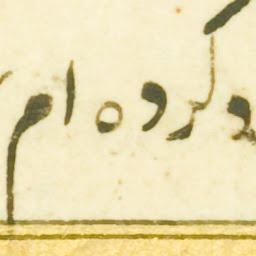 کرده ام